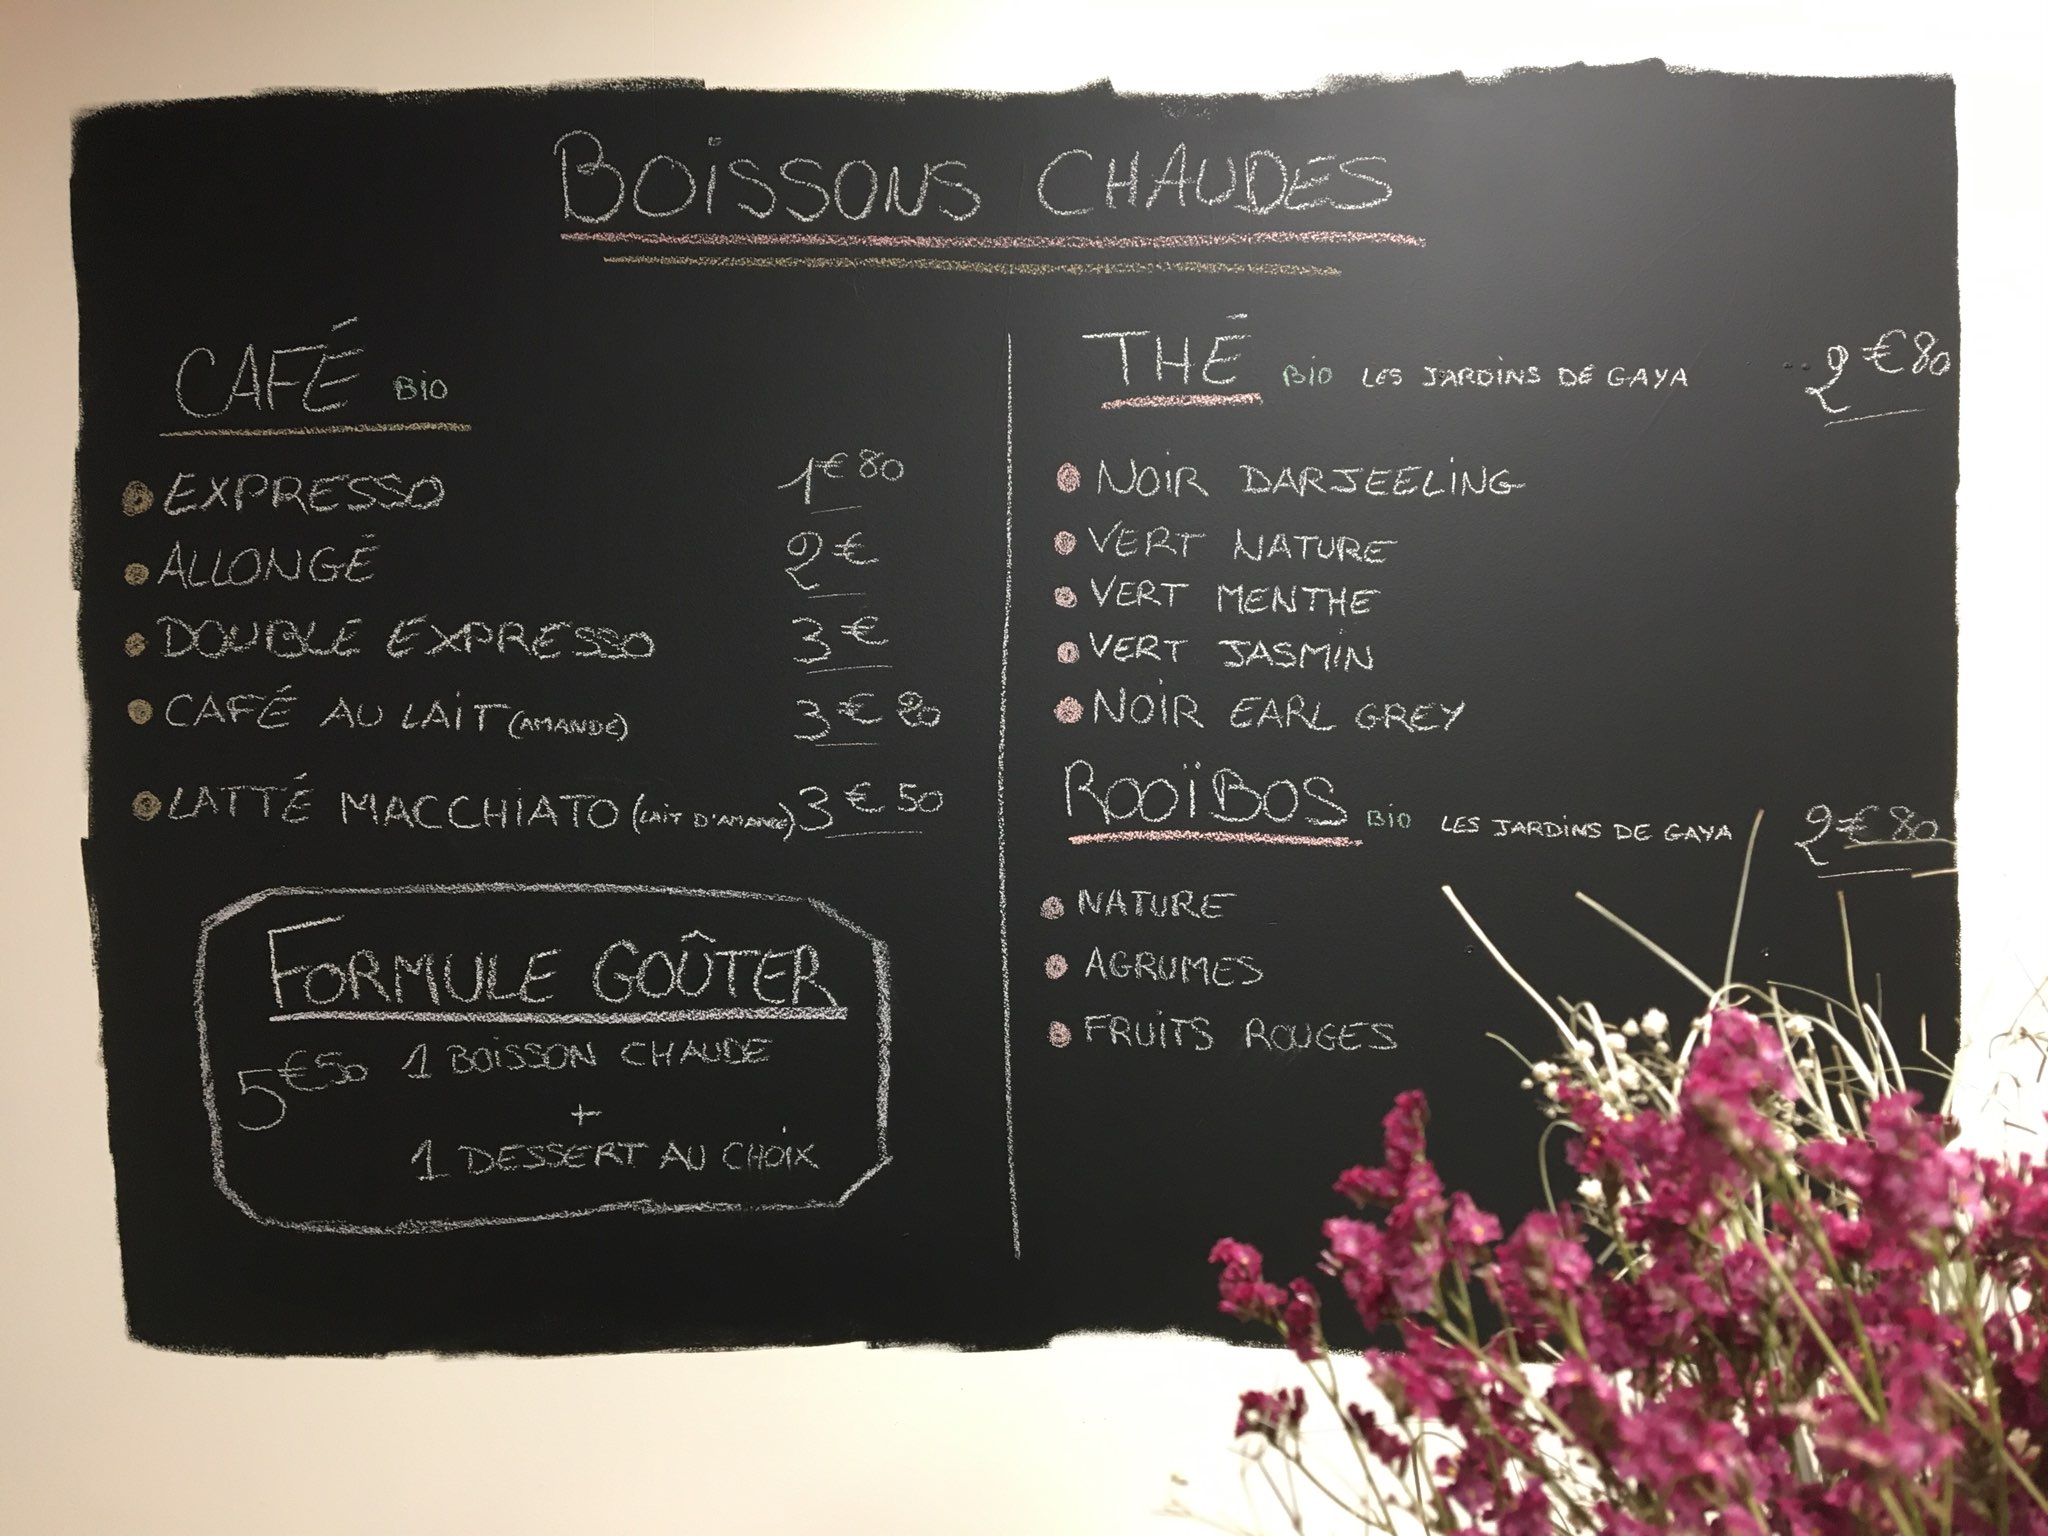 BOISSONS CHAUDES
CAFÉ BIO
EXPRESSO 1€80
ALLONGÉ 2€
DOUBLE EXPRESSO 3€
CAFÉ AU LAIT (AMANDE) 3€
LATTÉ MACCHIATO (LAIT D'AMANDE) 3€50
FORMULE GOÛTER
5€50 1 BOISSON CHAUDE
+
1 DESSERT AU CHOIX
THÉ BIO LES JARDINS DE GAYA 2€80
NOIR DARJEELING
VERT NATURE
VERT MENTHE
VERT JASMIN
NOIR EARL GREY
ROOÏBOS BIO LES JARDINS DE GAYA 2€80
NATURE
AGRUMES
FRUITS ROUGES